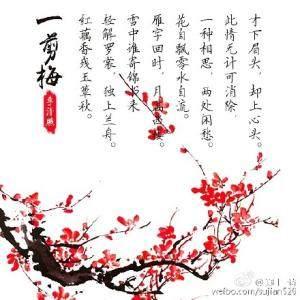 一剪梅
李清照
红藕香残玉簟秋。
轻解罗裳，独上兰舟。
雲中谁寄锦书来
雁字回时，月满西楼。
花自飘零水自流。
一种相思，两处闲愁。
此情无计可消除
才下眉头，却上心头。
weibo.com/sujian520